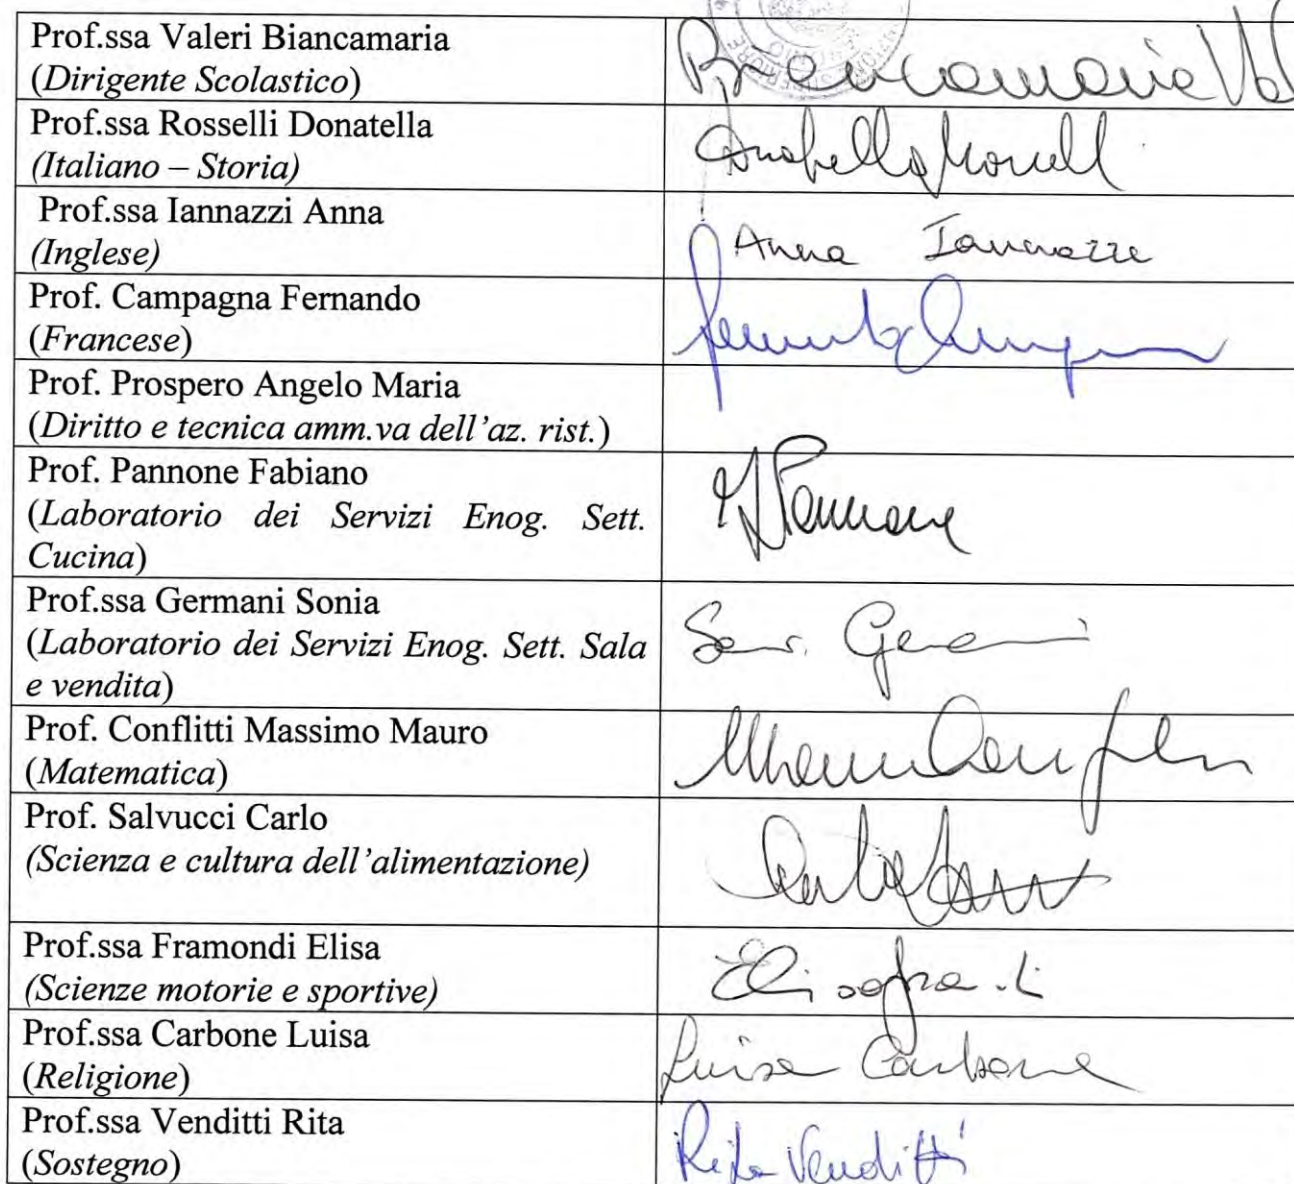 Prof.ssa Valeri Biancamaria
(Dirigente Scolastico)
Biancamaria Val
Prof.ssa Rosselli Donatella
(Italiano – Storia)
Prof.ssa Iannazzi Anna
(Inglese)
Anna Iannazzi
Prof. Campagna Fernando
(Francese)
Prof. Prospero Angelo Maria
(Diritto e tecnica amm.va dell'az. rist.)
Prof. Pannone Fabiano
(Laboratorio dei Servizi Enog. Sett.
Cucina)
Pannone
Prof.ssa Germani Sonia
(Laboratorio dei Servizi Enog. Sett. Sala
e vendita)
Prof. Conflitti Massimo Mauro
(Matematica)
Prof. Salvucci Carlo
(Scienza e cultura dell'alimentazione)
Prof.ssa Framondi Elisa
(Scienze motorie e sportive)
Prof.ssa Carbone Luisa
(Religione)
Luisa Carbone
Prof.ssa Venditti Rita
(Sostegno)
Rita Venditti